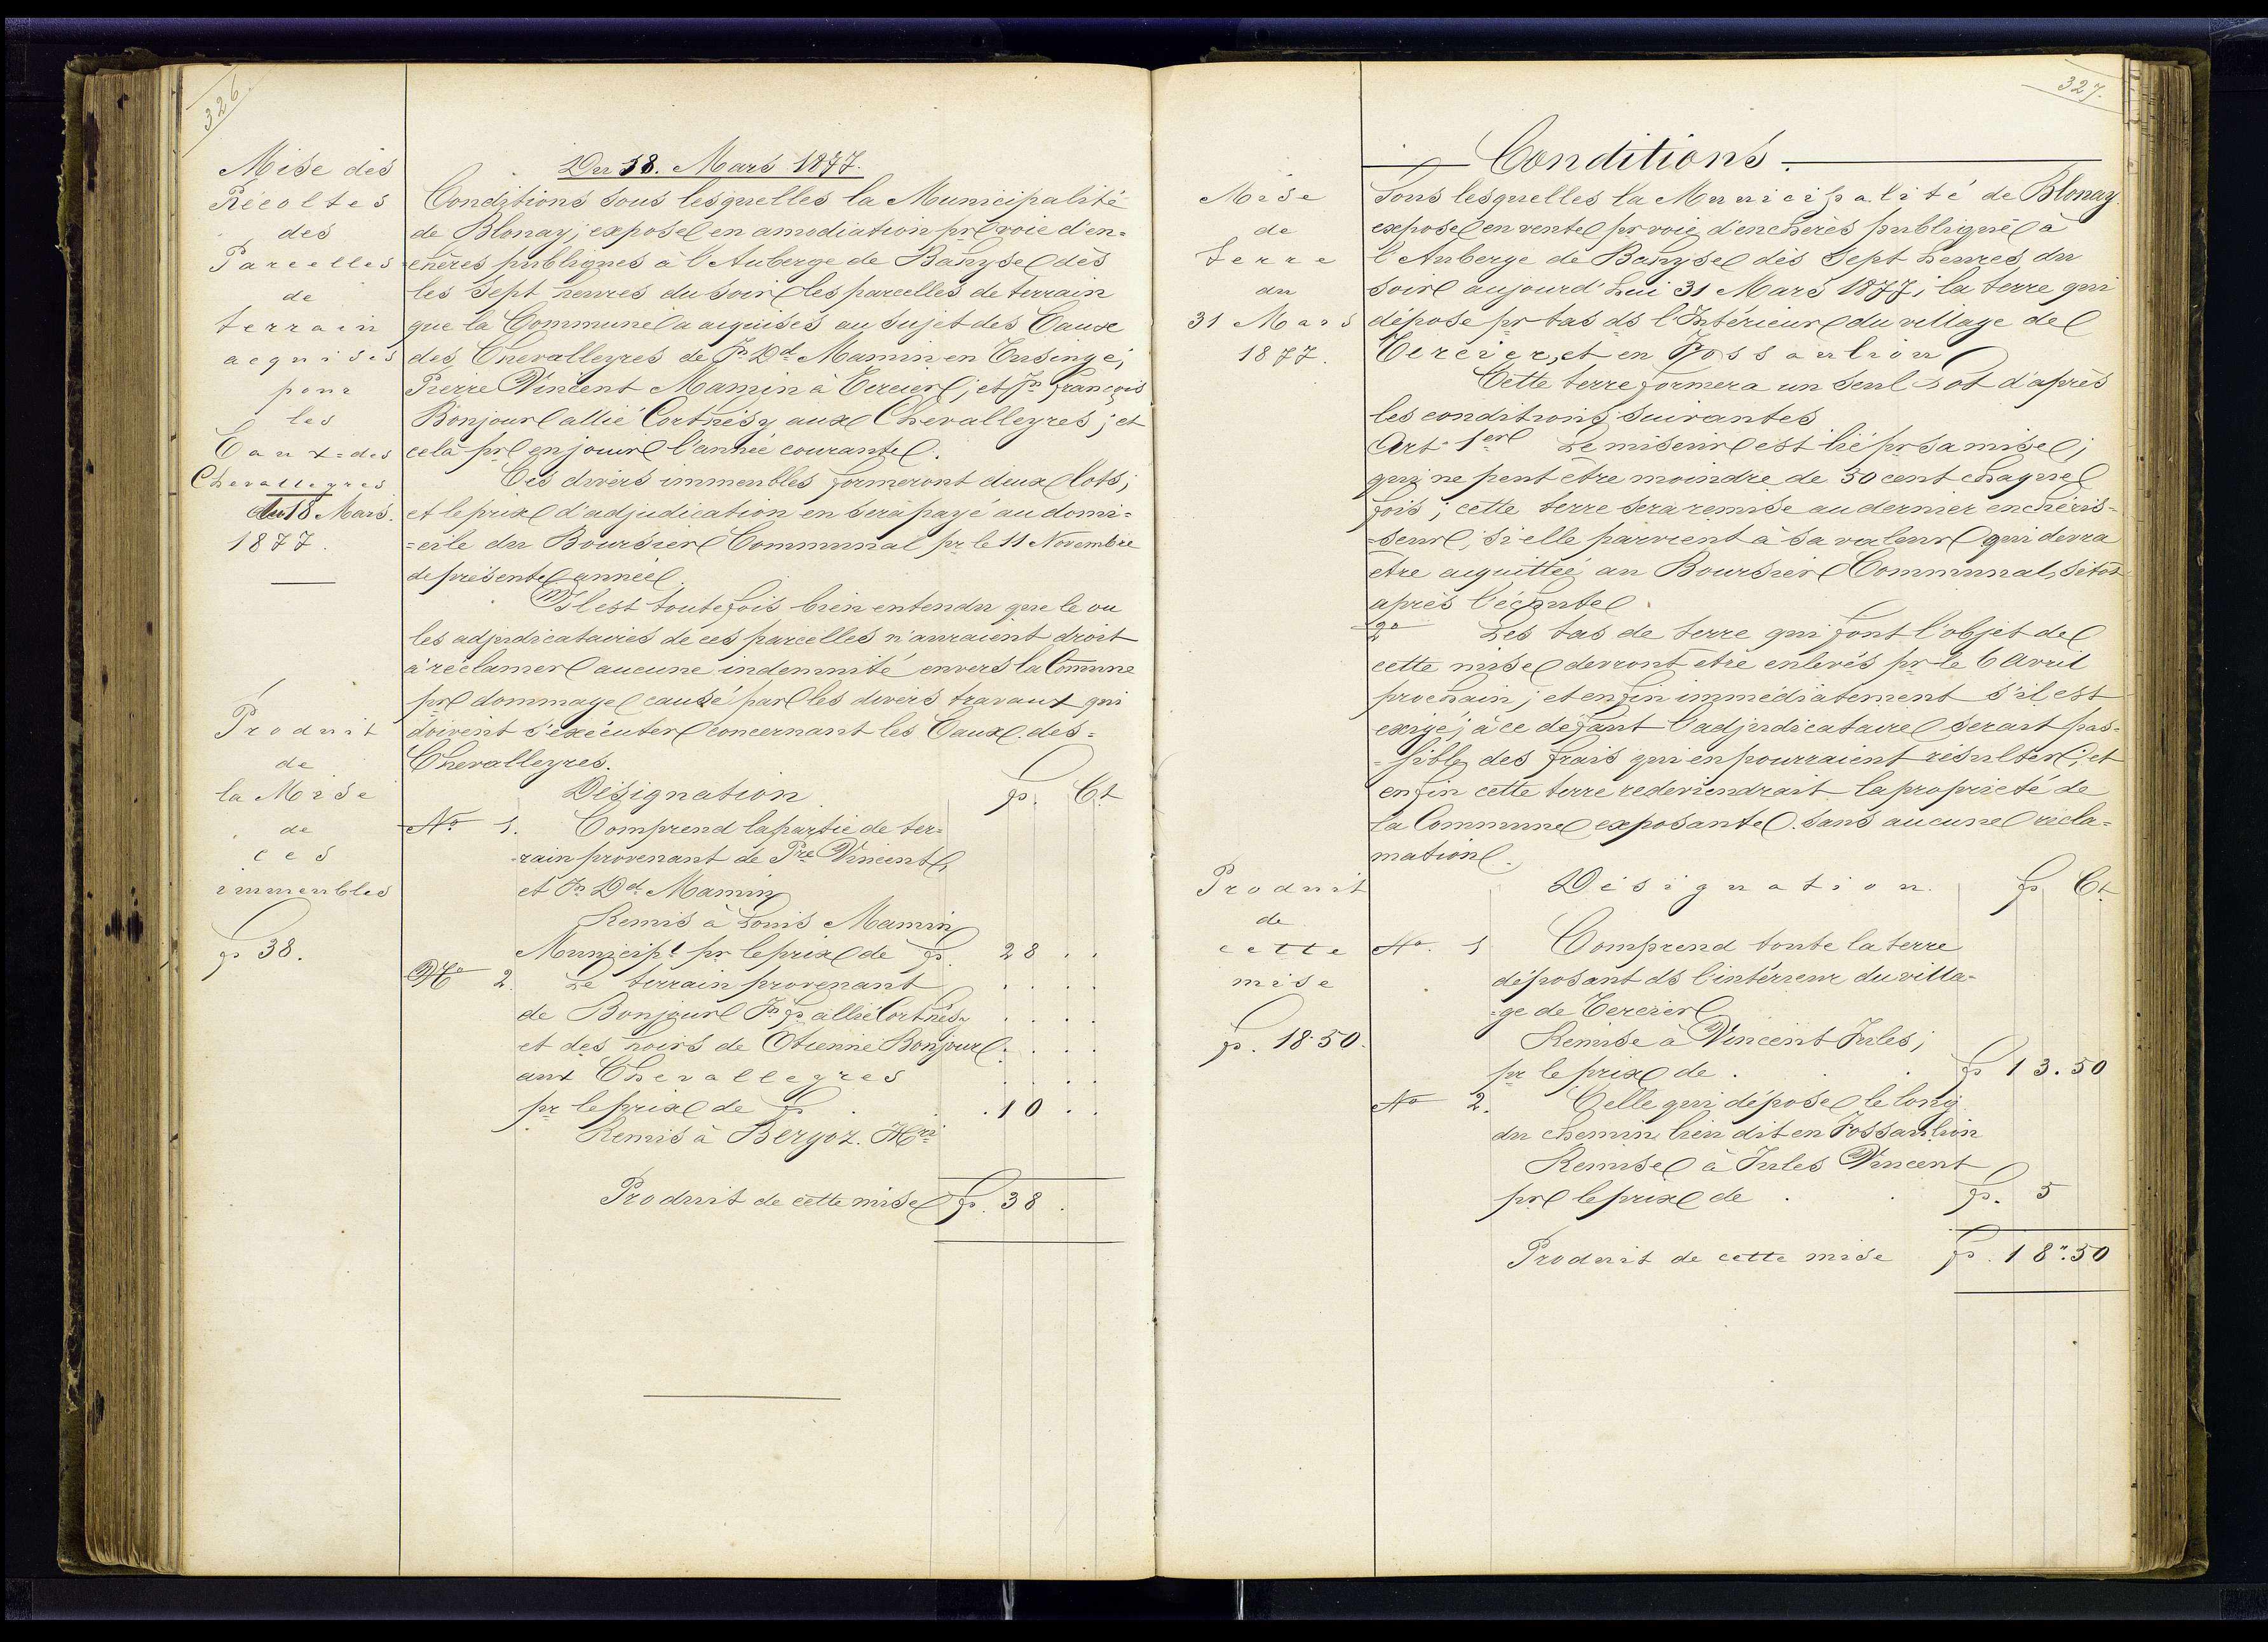 326.
Mise des
Récoltes
des
Parcelles
de
terrain
acquises
pour
les
Eaux=des
Chevalleyres
du 18 Mars.
1877.
Produit
de
la Mise
de
ces
immeubles
fr 38.
Du 18. Mars 1877.
Conditions sous lesquelles la Municipalité
de Blonay; expose en amodiation pr voie d'en=
=chères publiques à l'Auberge de Bahyse dès
les sept heures du soir les parcelles de terrain
que la Commune a acquises au sujet des Eaux
des Chevalleyres de Jn Dd Mamin en Ensinge;
Pierre Vincent Mamin à Tercier; et Jn François
Bonjour allié Corthésy aux Chevalleyres; et
celà pr en jouir l'année courante.
Ces divers immeubles formeront deux lots;
et le prix d'adjudication en sera payé au domi=
=cile du Boursier Communal pr le 11 Novembre
de présente année.
Il est toutefois bien entendu que le ou
les adjudicataires de ces parcelles n'auraient droit
à réclamer aucune indemnité envers la Comune
pr dommage causé par les divers travaux qui
doivent s'exécuter concernant les Eaux des=
Chevalleyres.
Désignation fr. Ct
No 1. Comprend la partie de ter=
=rain provenant de Pre Vincent,
et Jn Dd Mamin
Remis à Louis Mamin
Municipl pr le prix de fr. 28 . .
No 2. Le terrain provenant
de Bonjour Jn fs allié Corthés.
et des hoirs de Etienne Bonjour.
aux Chevalleyres
pr le prix de fr . . . 10 . .
Remis à Bergoz. Hri
Produit de cette mise fr. 38 .
327.
Conditions.
Mise
de
Terre
du
31 Mars
1877.
Produit
de
cette
mise
fr. 18.50.
Sous lesquelles la Municipalité de Blonay
expose en vente pr voie d'enchères publique à
l'Auberge de Bahyse dès sept heures du
soir aujourd'hui 31 Mars 1877; la terre qui
dépose pr tas ds l'Intérieur du village de
Tercier, et en Fossaulion
Cette terre formera un seul Lot d'après
les conditions suivantes
Art. 1er Le miseur est lié pr sa mise;
qui ne peut être moindre de 50 cent chaque
fois; cette terre sera remise au dernier enchéris=
=seur; si elle parvient à sa valeur qui devra
être acquittée au Boursier Communal, sitôt
après l'échute.
2o Les tas de terre qui font l'objet de
cette mise devront être enlevés pr le 6 Avril
prochain; et enfin immédiatement s'il est
exigé; à ce défaut l'adjudicataire serait pas=
=sible des frais qui en pourraient résulter; et
enfin cette terre redeviendrait la propriété de
la Commune exposante. sans aucune récla=
mation.
Désignation. fr Ct
No. 1 Comprend toute la terre
déposant ds l'intérieur du villa=
=ge de Tercier
Remise à Vincent Jules;
pr le prix de . . . fr 13.50
No 2. Celle qui dépose le long
du chemin lieu dit en Fossaulion
Remise à Jules Vincent
pr le prix de . . fr. 5
Produit de cette mise fr. 18".50